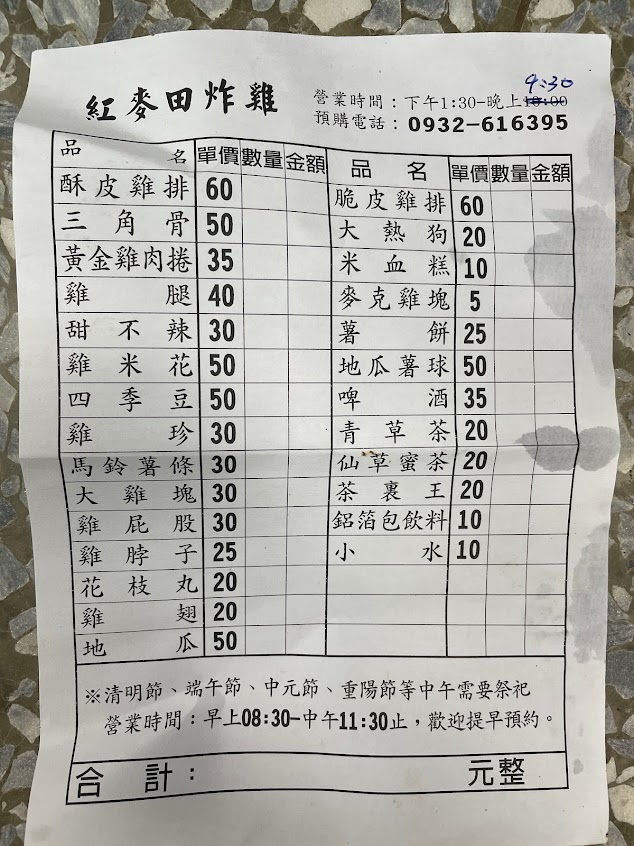 紅麥田炸雞
9:30
營業時間：下午1:30-晚上10:00
預購電話：0932-616395
品名 單價 數量 金額 品名 單價 數量 金額
酥皮雞排 60 脆皮雞排 60
三角骨 50 大熱狗 20
黃金雞肉捲 35 米血糕 10
雞腿 40 麥克雞塊 5
甜不辣 30 薯餅 25
雞米花 50 地瓜薯球 50
四季豆 50 啤酒 35
雞珍 30 青草茶 20
馬鈴薯條 30 仙草蜜茶 20
大雞塊 30 茶裏王 20
雞屁股 30 鋁箔包飲料 10
雞脖子 25 小水 10
花枝丸 20
雞翅 20
地瓜 50
※清明節、端午節、中元節、重陽節等中午需要祭祀
營業時間：早上08:30-中午11:30止，歡迎提早預約。
合計： 元整